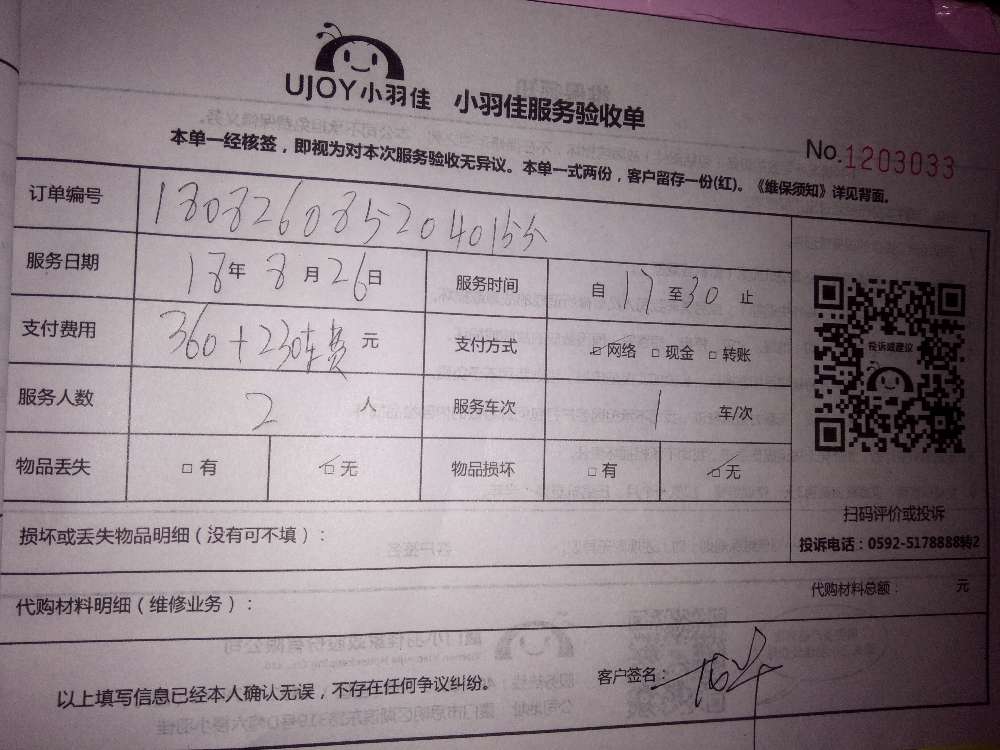 UJOY小羽佳 小羽佳服务验收单
No.1203033
本单一经核签，即视为对本次服务验收无异议。本单一式两份，客户留存一份(红)。《维保须知》详见背面。
订单编号 180826085204015
服务日期 18年 8月26日 服务时间 自17至30止
支付费用 360+230车费 元 支付方式 ☑网络 □现金 □转账
服务人数 2 人 服务车次 1 车/次
物品丢失 □有 ☑无 物品损坏 □有 ☑无
投诉或建议
扫码评价或投诉
投诉电话：0592-5178888转2
损坏或丢失物品明细（没有可不填）：
代购材料明细（维修业务）： 代购材料总额： 元
以上填写信息已经本人确认无误，不存在任何争议纠纷。 客户签名：